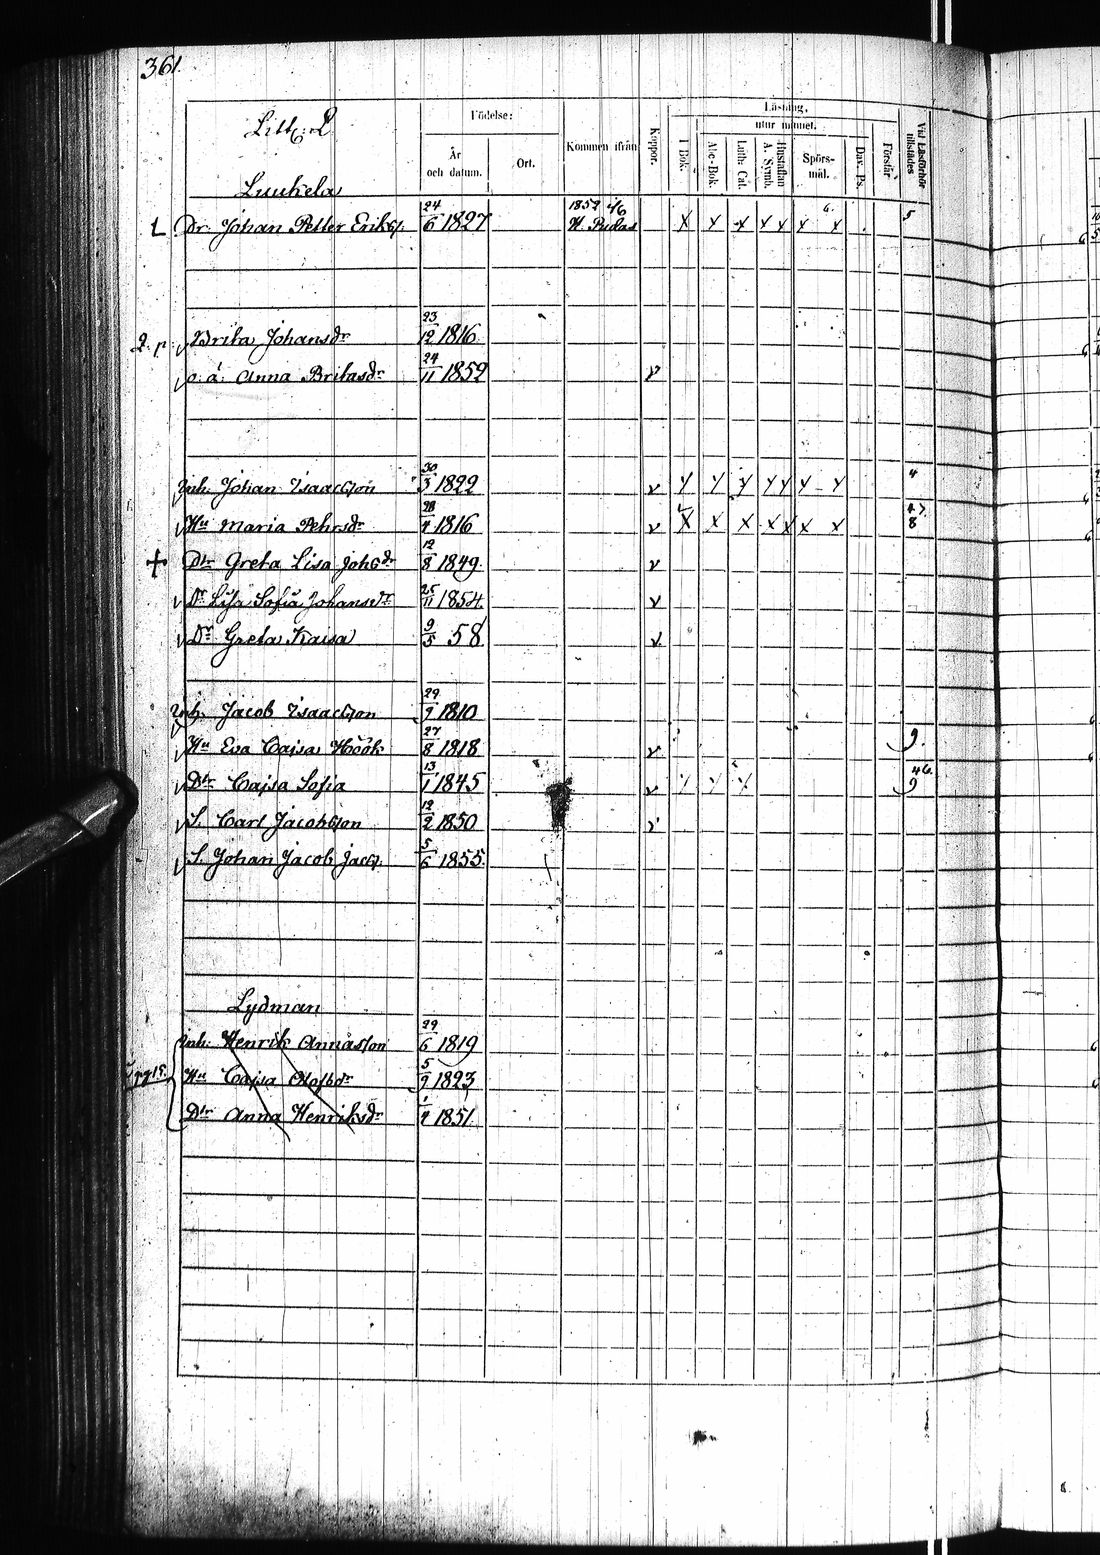 361.
Litt: L
Födelse:
År och datum.
Ort.
Kommen ifrån
Koppor.
Läsning,
utur minnet.
I Bok.
Abc-Bok.
Luth. Cat.
Hustaflan A. Symb.
Spörs-mål.
Dav. Ps.
Förstår
Vid Läsförhör tillstädes
Luukela
L Dr. Johan Petter Eriks. 24/6 1827 1852 46 N. Pudas X X X X X X X 6. 5
Brita Johansdr 23/12 1816
o. ä. Anna Britasdr 24/11 1852 v
Inh. Johan Isaacsson 30/3 1822 v 4
Hu Maria Pehrsdr 28/4 1816 v X X X X X X X 47 8
+ Dtr Greta Lisa Johsdr 12/8 1849. v
v Dr Lisa Sofia Johansdr 25/11 1854. v
v Dr Greta Kaisa 9/5 58 v
Inh. Jacob Isaacsson 29/9 1810
Hu Eva Caisa Höök 27/8 1818 v 9.
v Dtr Cajsa Sofia 13/1 1845 v 46. 9
v S. Carl Jacobsson 12/2 1850 v
v S. Johan Jacob Jacs. 5/6 1855.
Lydman
Inh. Henrik Annasson 29/6 1819
Hu Cajsa Olofsdr 5/9 1823
Dtr Anna Henriksdr 1/4 1851